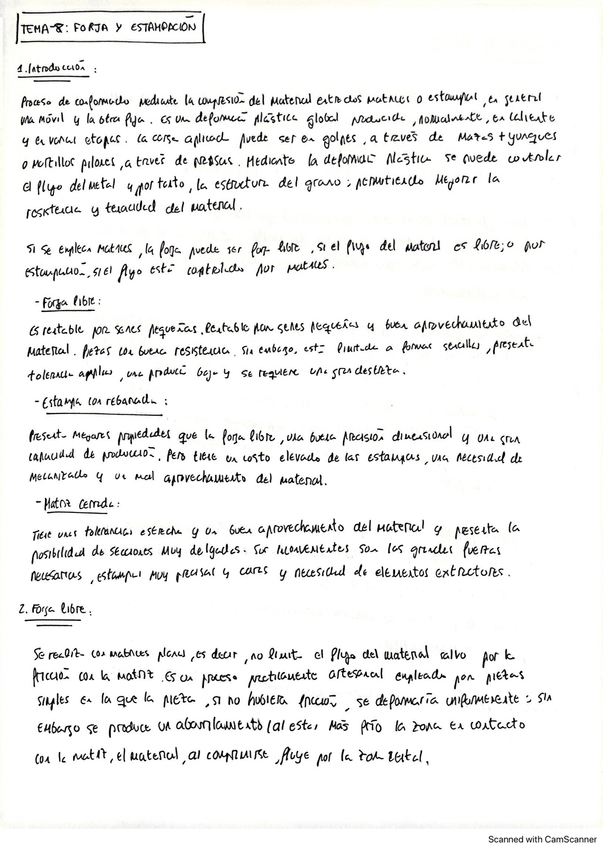 TEMA-8: FORJA Y ESTAMPACIÓN
1. Introducción:
Proceso de conformado mediante la compresión del material entre dos matrices o estampas, en general
una móvil y la otra fija. Es una deformación plástica global producida, normalmente, en caliente
y en varias etapas. La carga aplicada puede ser en golpes, a través de mazas + yunques
o martillos pilones, a través de prensas. Mediante la deformación plástica se puede controlar
el flujo del metal y por tanto, la estructura del grano; permitiendo mejorar la
resistencia y tenacidad del material.
Si se emplean matrices, la forja puede ser forja libre, si el flujo del material es libre; o por
estampación, si el flujo está controlado por matrices.
- Forja libre:
Es rentable por series pequeñas. Rentable para series pequeñas y buen aprovechamiento del
material. Piezas con buena resistencia. Sin embargo, está limitada a formas sencillas, presenta
tolerancias amplias, una producción baja y se requiere una gran destreza.
- Estampa con rebanada:
Presenta mejores propiedades que la forja libre, una buena precisión dimensional y una gran
capacidad de producción. Pero tiene un costo elevado de las estampas, una necesidad de
mecanizado y un mal aprovechamiento del material.
- Matriz cerrada:
Tiene unas tolerancias estrechas y un buen aprovechamiento del material y presenta la
posibilidad de secciones muy delgadas. Sus inconvenientes son las grandes fuerzas
necesarias, estampas muy precisas y caras y necesidad de elementos extractores.
2. Forja libre:
Se realiza con matrices planas, es decir, no limita el flujo del material salvo por la
fricción con la matriz. Es un proceso prácticamente artesanal empleado para piezas
simples en la que la pieza, si no hubiera fricción, se deformaría uniformemente; sin
embargo se produce un abarrilamiento (al estar más frío la zona en contacto
con la matriz, el material, al comprimirse, fluye por la zona central.
Scanned with CamScanner